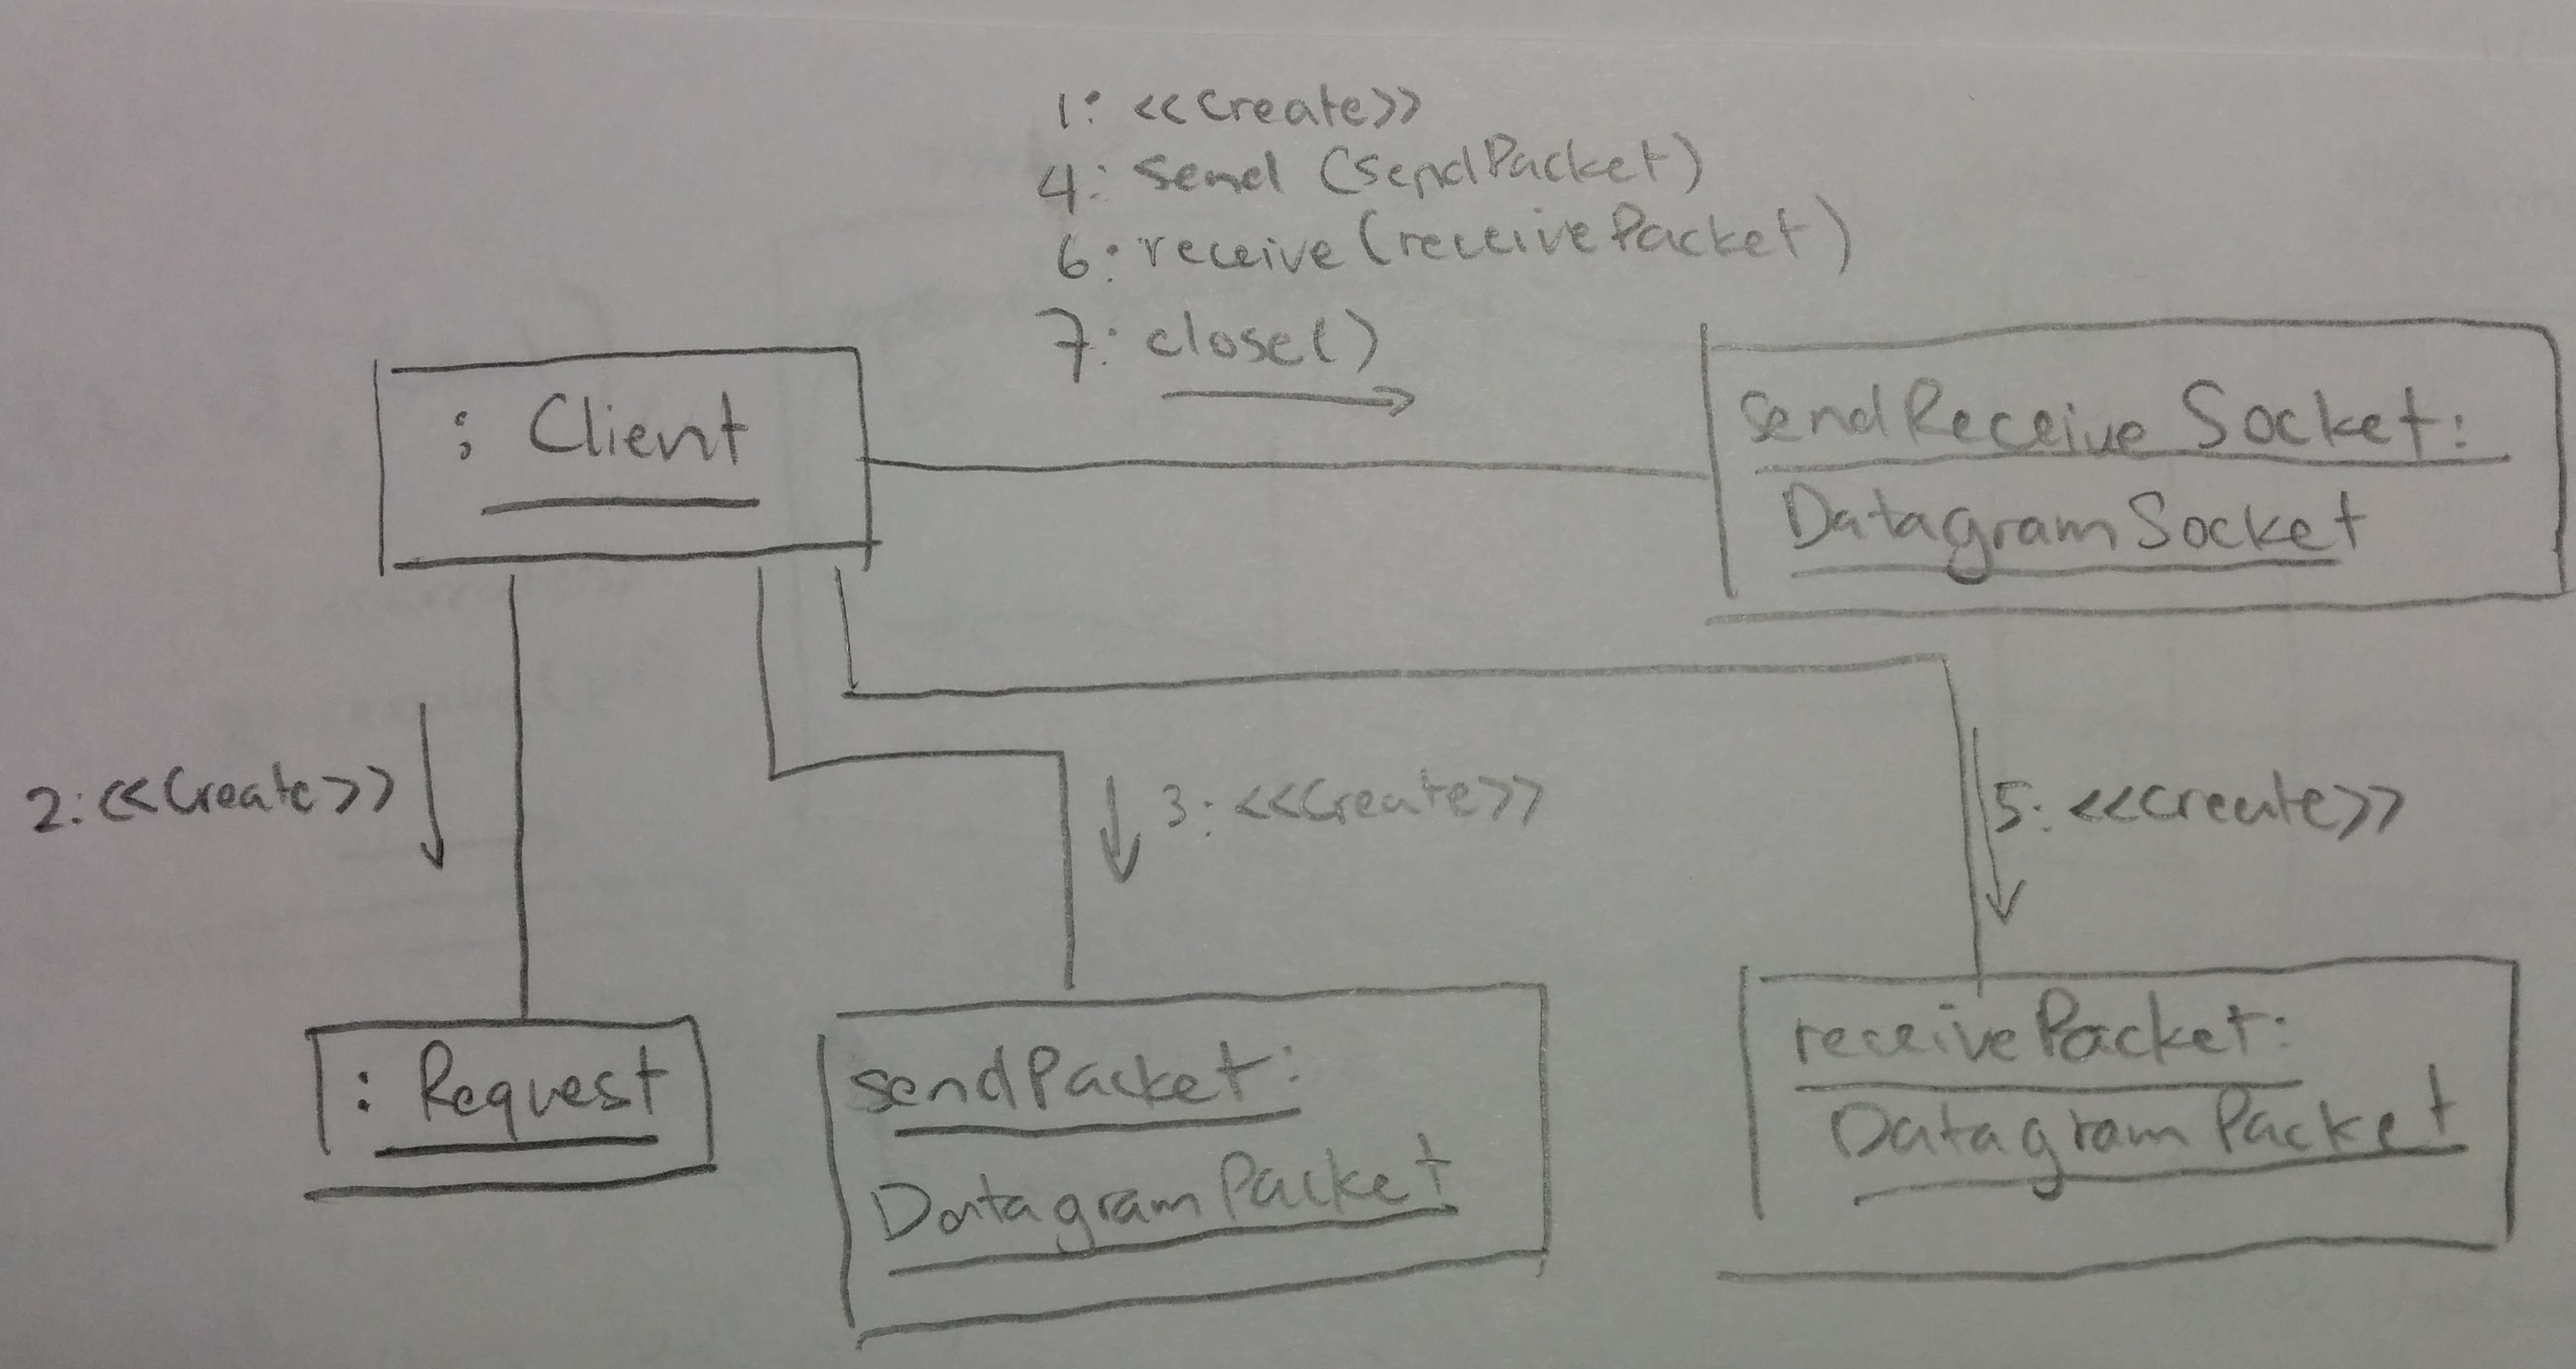 1: <<create>>
4: send (sendPacket)
6: receive (receivePacket)
7: close()
: Client
sendReceive Socket:
DatagramSocket
2: <<Create>>
3: <<Create>>
5: <<create>>
: Request
sendPacket:
DatagramPacket
receivePacket:
DatagramPacket